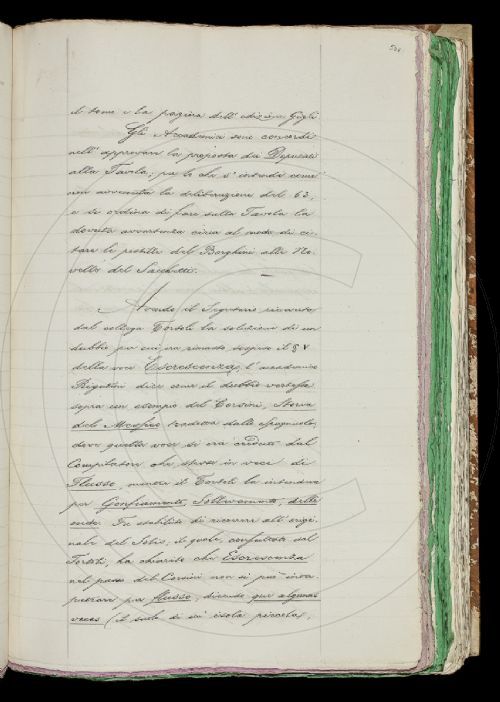 il tomo e la pagina dell'edizione Gigli
Gli Accademici sono concordi
nell'approvare la proposta dei Deputati
alla Tavola; per lo che s'intenda come
non avvenuta la deliberazione del 63,
e si ordina di fare sulla Tavola la
dovuta avvertenza circa al modo di ci-
tare le postille del Borghini alle No-
velle del Sacchetti.
Avendo il Segretario ricevuta
dal collega Tortoli la soluzione di un
dubbio per cui era rimasto sospeso il § V
della voce Escrescenza, l'accademico
Rigutini dice come il dubbio vertesse
sopra un esempio del Corsini, Storia
del Messico tradotta dallo Spagnuolo,
dove quella voce si era creduta dal
Compilatore che stesse in voce di
Flusso, mentre il Tortoli la intendeva
per Gonfiamento, Sollevamento, delle
onde. Fu stabilito di ricorrere all'origi-
nale del Solis, il quale, consultato dal
Tortoli, ha chiarito che Escrescenza
nel passo del Corsini non si può inter-
petrare per flusso, dicendo que algunas
veces (il suolo di un' isola piccola),